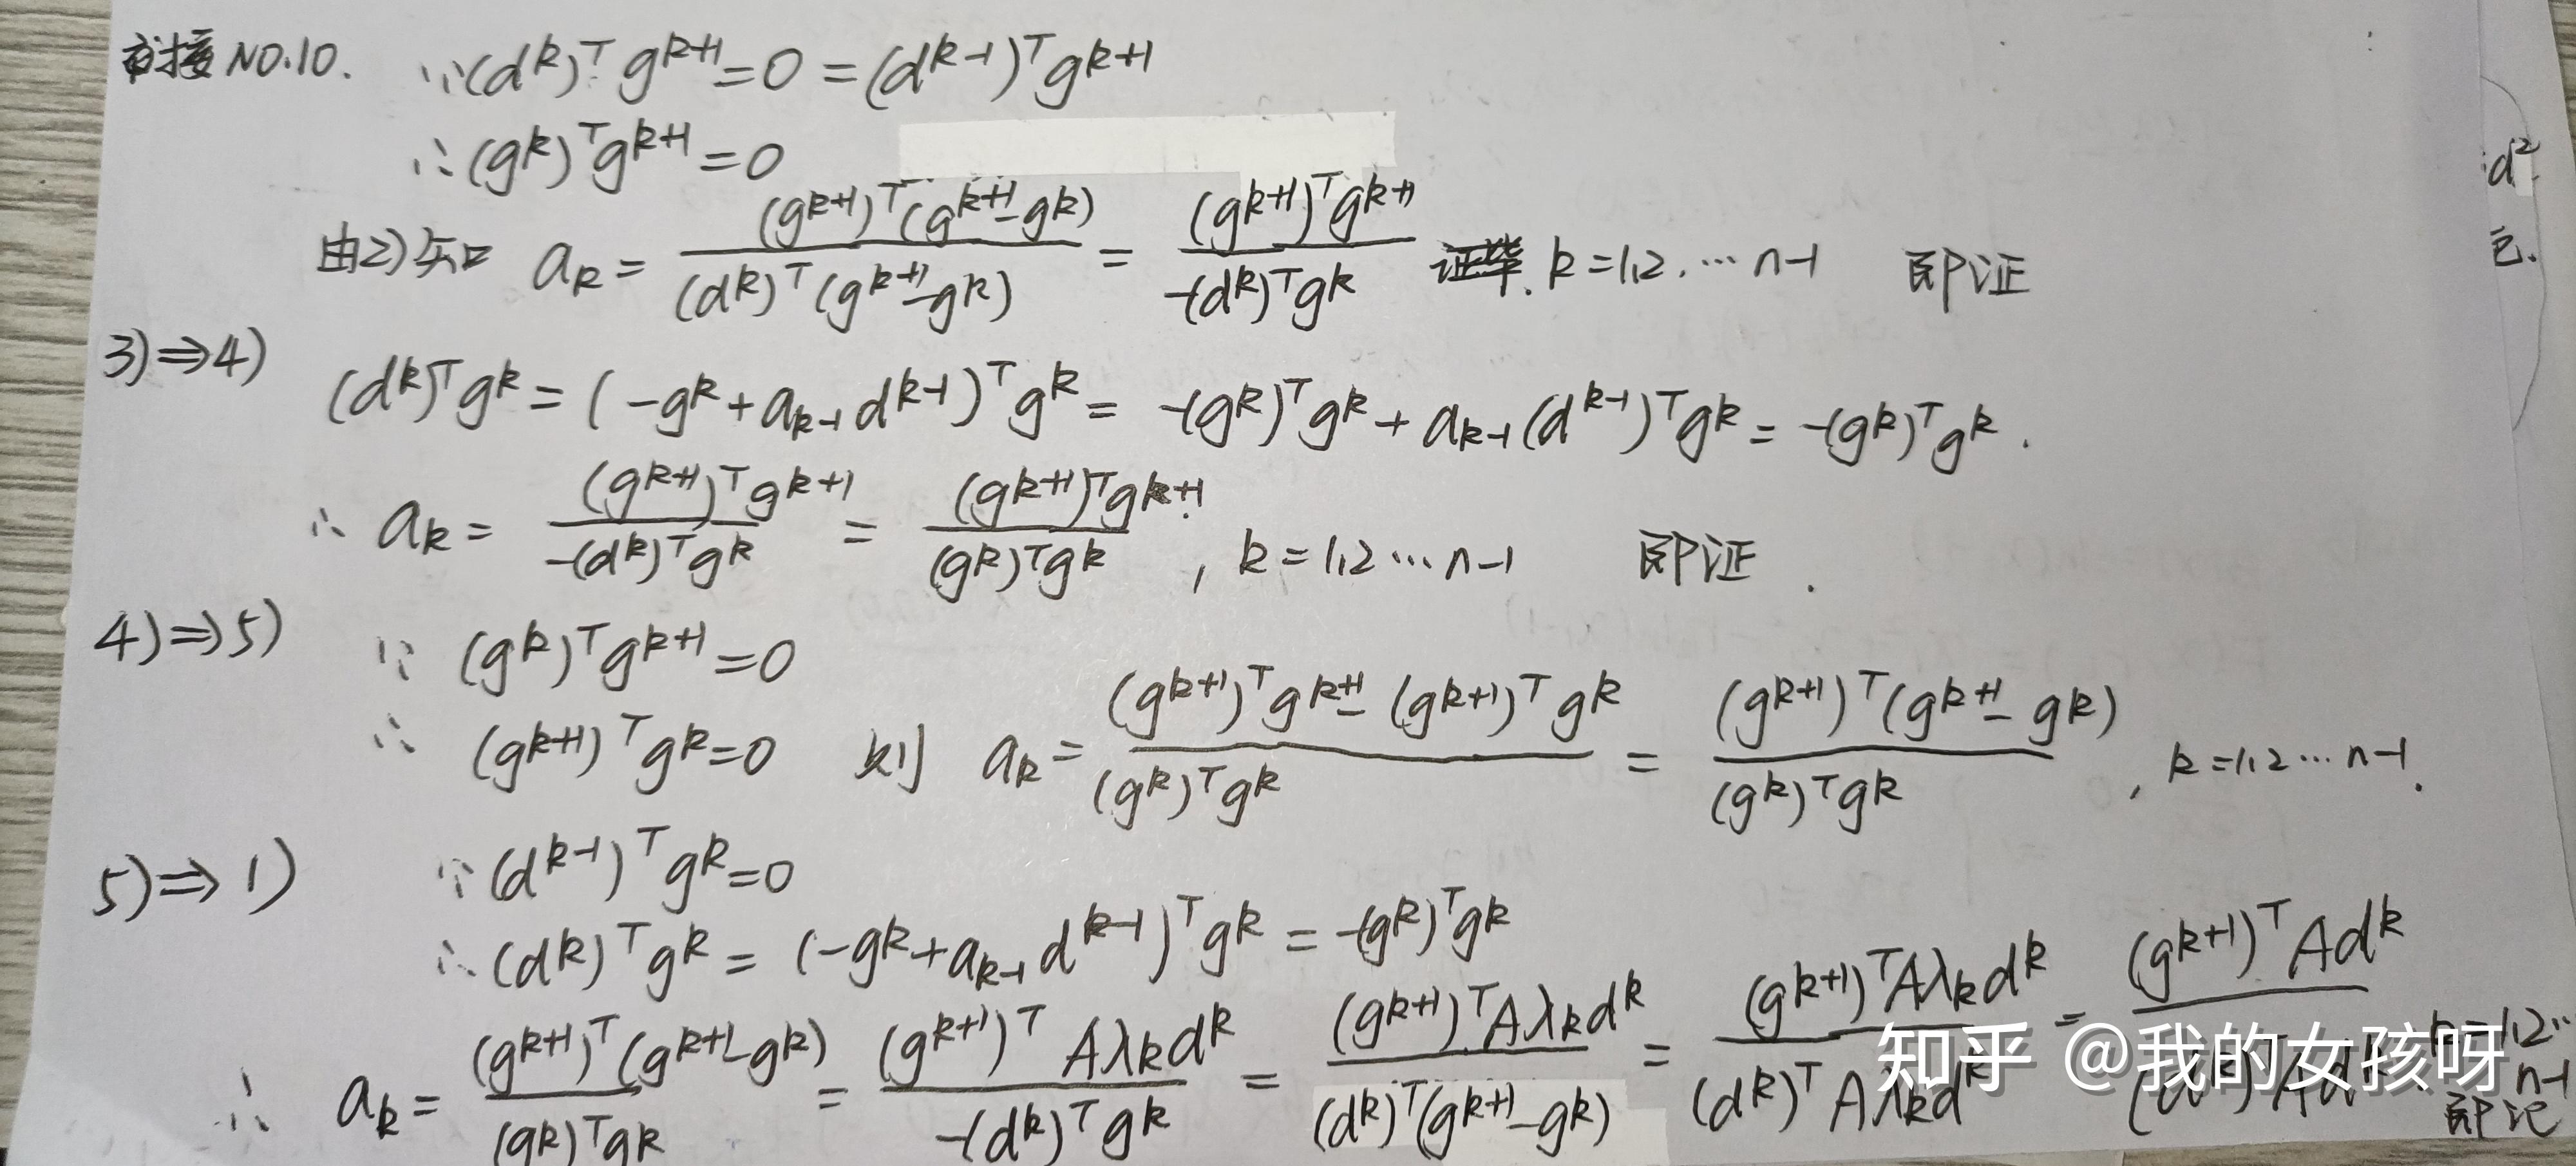 接NO.10. ∵(d^k)^T g^{k+1}=0=(d^{k-1})^T g^{k+1}
∴(g^k)^T g^{k+1}=0
由2)知 a_k = \frac{(g^{k+1})^T(g^{k+1}-g^k)}{(d^k)^T(g^{k+1}-g^k)} = \frac{(g^{k+1})^T g^{k+1}}{-(d^k)^T g^k} k=1,2.…n-1 即证
3)⇒4)
(d^k)^T g^k = (-g^k+a_{k-1}d^{k-1})^T g^k = -(g^k)^T g^k + a_{k-1}(d^{k-1})^T g^k = -(g^k)^T g^k.
∴ a_k = \frac{(g^{k+1})^T g^{k+1}}{-(d^k)^T g^k} = \frac{(g^{k+1})^T g^{k+1}}{(g^k)^T g^k}, k=1,2…n-1 即证.
4)⇒5) ∵ (g^k)^T g^{k+1}=0
∴ (g^{k+1})^T g^k=0 则 a_k = \frac{(g^{k+1})^T g^{k+1}-(g^{k+1})^T g^k}{(g^k)^T g^k} = \frac{(g^{k+1})^T(g^{k+1}-g^k)}{(g^k)^T g^k}, k=1,2…n-1.
5)⇒1) ∵(d^{k-1})^T g^k=0
∴(d^k)^T g^k = (-g^k+a_{k-1}d^{k-1})^T g^k = -(g^k)^T g^k
∴ a_k = \frac{(g^{k+1})^T(g^{k+1}-g^k)}{(g^k)^T g^k} = \frac{(g^{k+1})^T Aλ_k d^k}{-(d^k)^T g^k} = \frac{(g^{k+1})^T Aλ_k d^k}{(d^k)^T(g^{k+1}-g^k)} = \frac{(g^{k+1})^T Aλ_k d^k}{(d^k)^T Aλ_k d^k} = \frac{(g^{k+1})^T Ad^k}{(d^k)^T Ad^k} k=1,2…
n-1
即证
d^2
知乎 @我的女孩呀